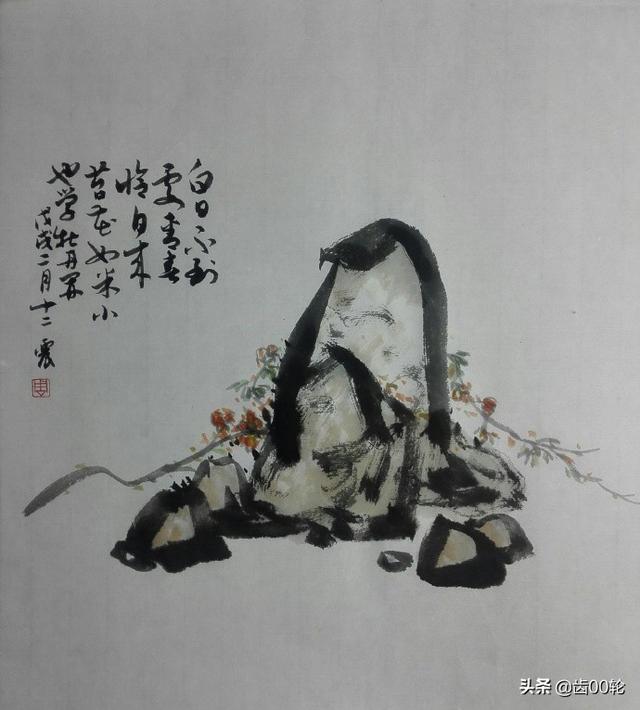 白日不到
处青春
恰自来
苔花如米小
也学牡丹开
戊戌二月十二 震
头条 @齿00轮